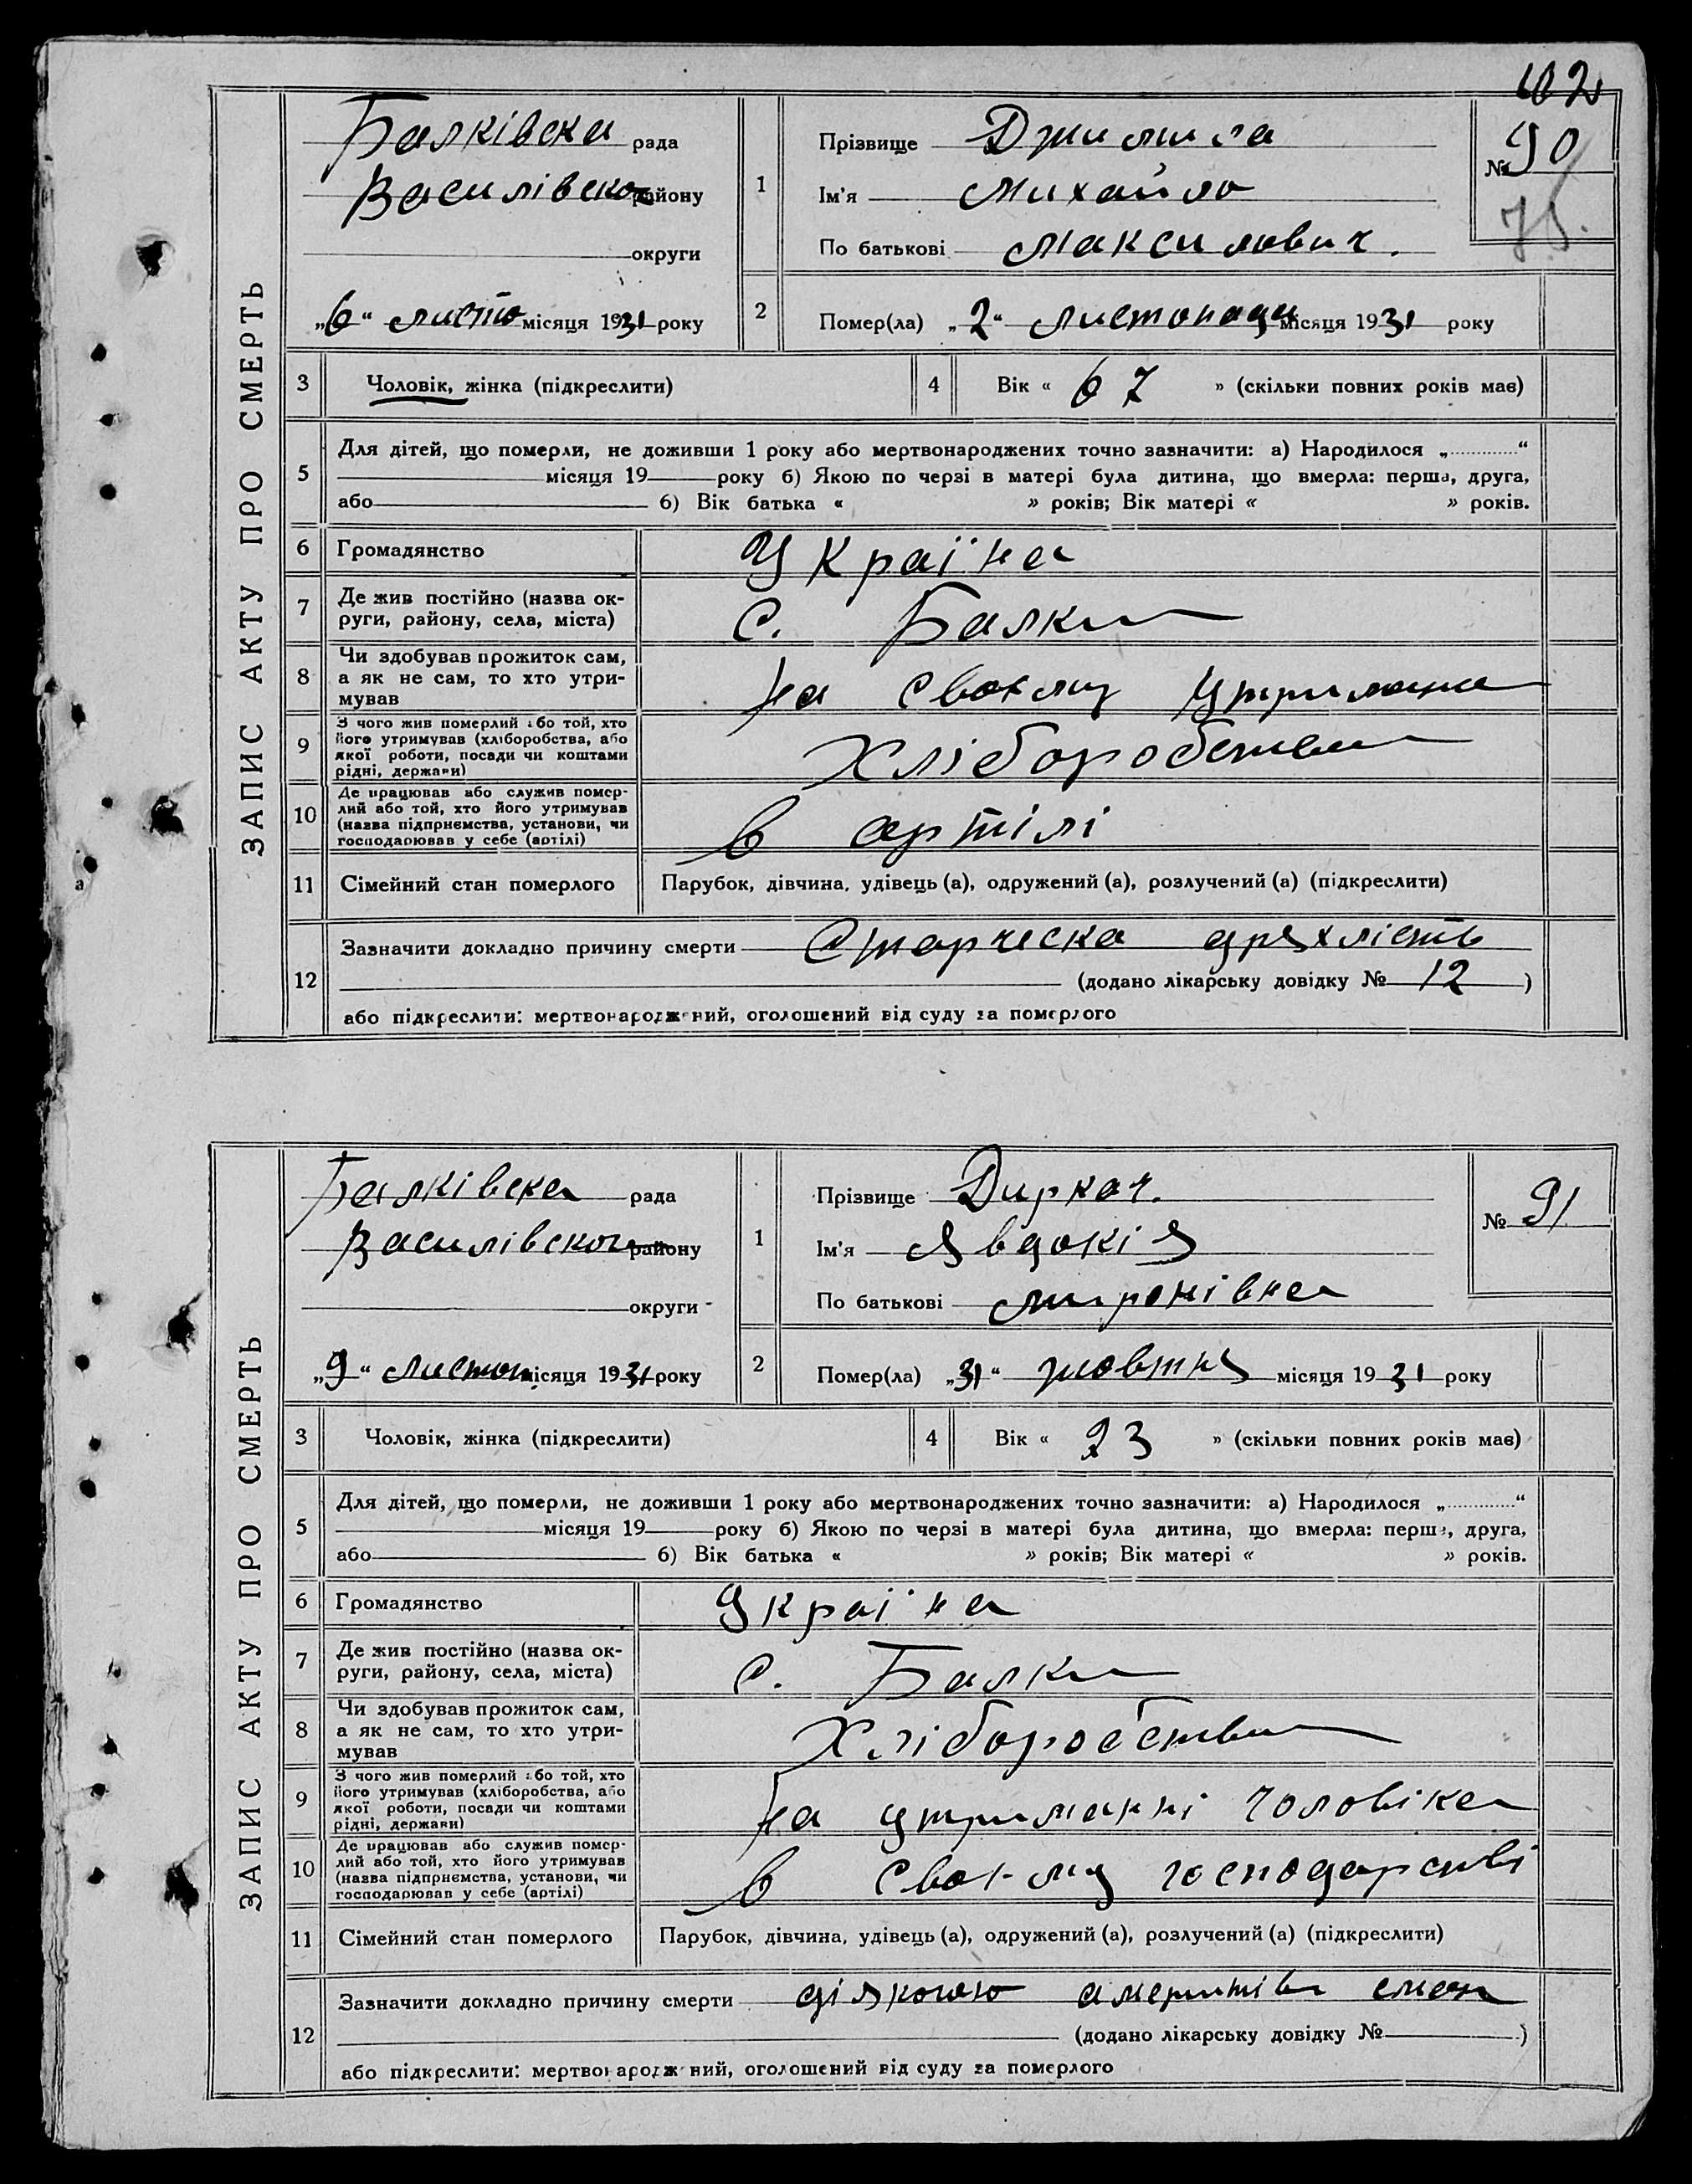 102
ЗАПИС АКТУ ПРО СМЕРТЬ
Балківска рада
Василівског району
округи
„6“ листо місяця 1931 року
1
Прізвище Джимила
Ім'я Михайло
По батькові Максимович.
№ 90
2
Помер(ла) „2“ листопада місяця 1931 року
3 Чоловік, жінка (підкреслити)
4 Вік « 67 » (скільки повних років має)
5 Для дітей, що померли, не доживши 1 року або мертвонароджених точно зазначити: а) Народилося „............“
місяця 19 року б) Якою по черзі в матері була дитина, що вмерла: перша, друга,
або 6) Вік батька « » років; Вік матері « » років.
6 Громадянство Україна
7 Де жив постійно (назва ок-
руги, району, села, міста) с. Балки
8 Чи здобував прожиток сам,
а як не сам, то хто утри-
мував
на своєму утримана
9 З чого жив померлий або той, хто
його утримував (хліборобства, або
якої роботи, посади чи коштами
рідні, держави)
Хліборобством
10 Де працював або служив помер-
лий або той, хто його утримував
(назва підприємства, установи, чи
господарював у себе (артілі)
в артілі
11 Сімейний стан померлого Парубок, дівчина, удівець (а), одружений (а), розлучений (а) (підкреслити)
12 Зазначити докладно причину смерти Старческа дряхлість
(додано лікарську довідку № 12 )
або підкреслити: мертвонароджений, оголошений від суду за померлого
ЗАПИС АКТУ ПРО СМЕРТЬ
Балківска рада
Василівског району
округи
„9“ листоп місяця 1931 року
1
Прізвище Диркач.
Ім'я Явдокія
По батькові Миронівна
№ 91
2
Помер(ла) „31“ жовтня місяця 1931 року
3 Чоловік, жінка (підкреслити)
4 Вік « 23 » (скільки повних років має)
5 Для дітей, що померли, не доживши 1 року або мертвонароджених точно зазначити: а) Народилося „............“
місяця 19 року б) Якою по черзі в матері була дитина, що вмерла: перша, друга,
або 6) Вік батька « » років; Вік матері « » років.
6 Громадянство Україна
7 Де жив постійно (назва ок-
руги, району, села, міста) с. Балки
8 Чи здобував прожиток сам,
а як не сам, то хто утри-
мував
Хліборобством
9 З чого жив померлий або той, хто
його утримував (хліборобства, або
якої роботи, посади чи коштами
рідні, держави)
на утриманні чоловіка
10 Де працював або служив помер-
лий або той, хто його утримував
(назва підприємства, установи, чи
господарював у себе (артілі)
в своєму господарстві
11 Сімейний стан померлого Парубок, дівчина, удівець (а), одружений (а), розлучений (а) (підкреслити)
12 Зазначити докладно причину смерти
(додано лікарську довідку № )
або підкреслити: мертвонароджений, оголошений від суду за померлого